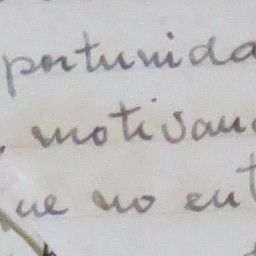 portunida
motivan
ue no ent